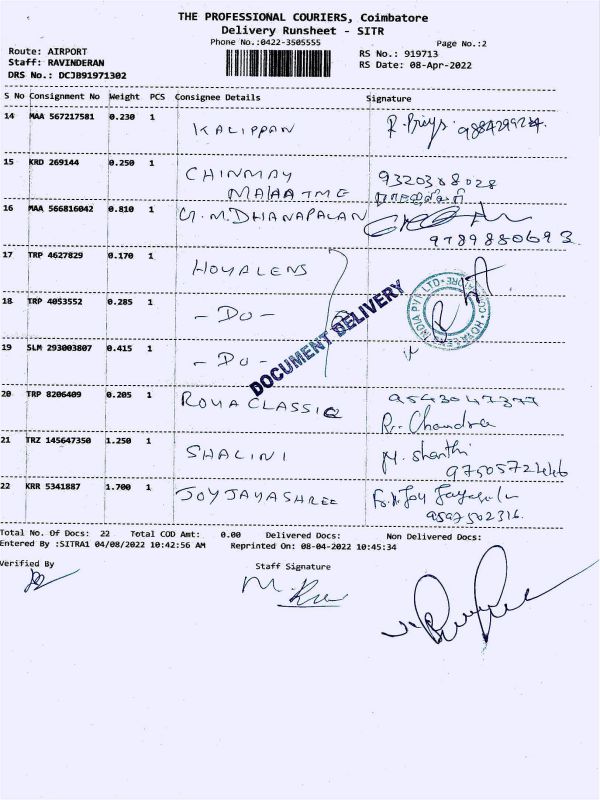 THE PROFESSIONAL COURIERS, Coimbatore
Delivery Runsheet - SITR
Phone No.:0422-3505555
Page No.:2
Route: AIRPORT
RS No.: 919713
Staff: RAVINDERAN
RS Date: 08-Apr-2022
DRS No.: DCJB91971302
S No Consignment No Weight PCS Consignee Details Signature
14 MAA 567217581 0.230 1 KALIPPAN R. Priya
15 KRD 269144 0.250 1 CHINMAY 9320388028
MAHATME
16 MAA 566816042 0.810 1 G.M.DHANAPALAN
9789880693
17 TRP 4627829 0.170 1 HOYALENS
18 TRP 4053552 0.285 1 - DO -
19 SLM 293003807 0.415 1 - DO -
DOCUMENT DELIVERY
20 TRP 8206409 0.205 1 ROYACLASSIC 9543047377
R. Chandra
21 TRZ 145647350 1.250 1 SHALINI M. Shanthi
9750572446
22 KRR 5341887 1.700 1 JOYJAYASHREE
9597502316
Total No. Of Docs: 22 Total COD Amt: 0.00 Delivered Docs: Non Delivered Docs:
Entered By :SITRA1 04/08/2022 10:42:56 AM Reprinted On: 08-04-2022 10:45:34
Verified By
Staff Signature